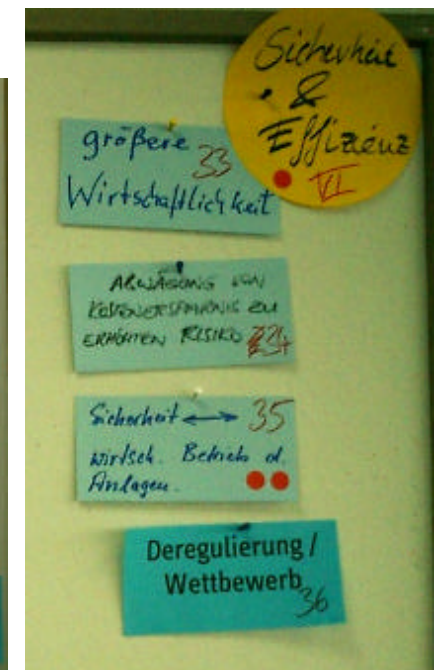 Sicherheit
&
Effizienz
VI
größere
33
Wirtschaftlichkeit
ABWÄGUNG VON
KOSTENERSPARNIS ZU
ERHÖHTEN RISIKO
Sicherheit ↔ 35
wirtsch. Betrieb d.
Anlagen.
Deregulierung /
Wettbewerb
36